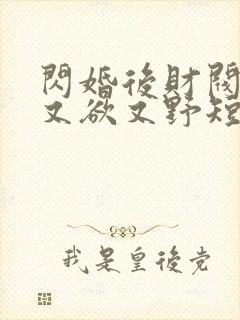 閃婚後財閥
又欲又野短
我是皇後党